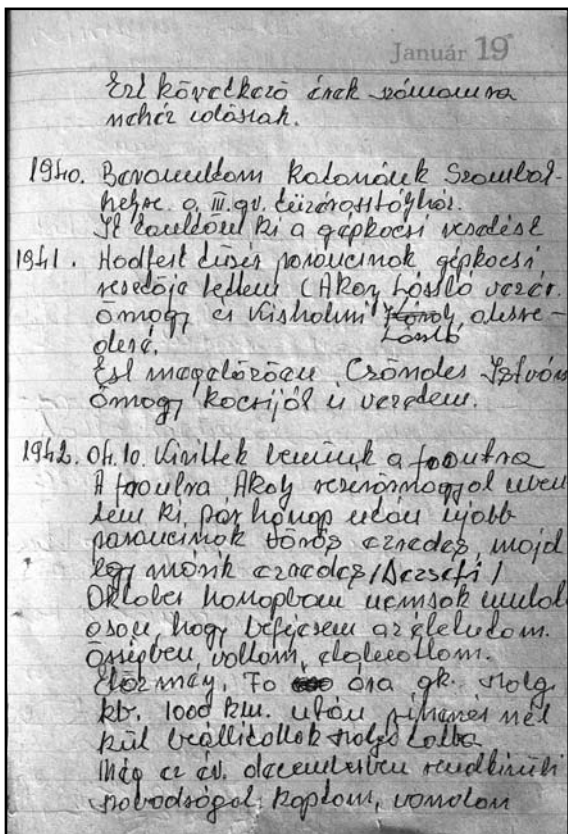 Január 19
Ezt következő évek számomra
nehéz időszak.
1940. Bevonultam katonának Szombat-
helyre a III. gv. tüzérosztályhoz.
It tanultam ki a gépkocsi vezetést
1941. Hadtest tüzér parancsnok gépkocsi
vezetője lettem (Ákoy László vezér
őrnagy és Kisholmi László alezre-
desé.
Ezt megelőzően Csöndes István
őrnagy kocsiját is vezettem.
1942. 04. 10. Kivittek bennünk a frontra
A frontra Ákoy vezérőrnaggyal men
tem ki, pár hónap után újabb
parancsnok Vörös ezredes, majd
egy másik ezredes /Dezséfi/
Október hónapban nemsok mulot
oson, hogy befejezem az életutom.
Őrségben voltam, elaludtam.
Előzmény, 70 óra gk. szolg.
kb. 1000 km. után pihenés nél
kül beállítottak szolgálatba
Még ez év. decemberben rendkívüli
szabadságot kaptam, vonaton